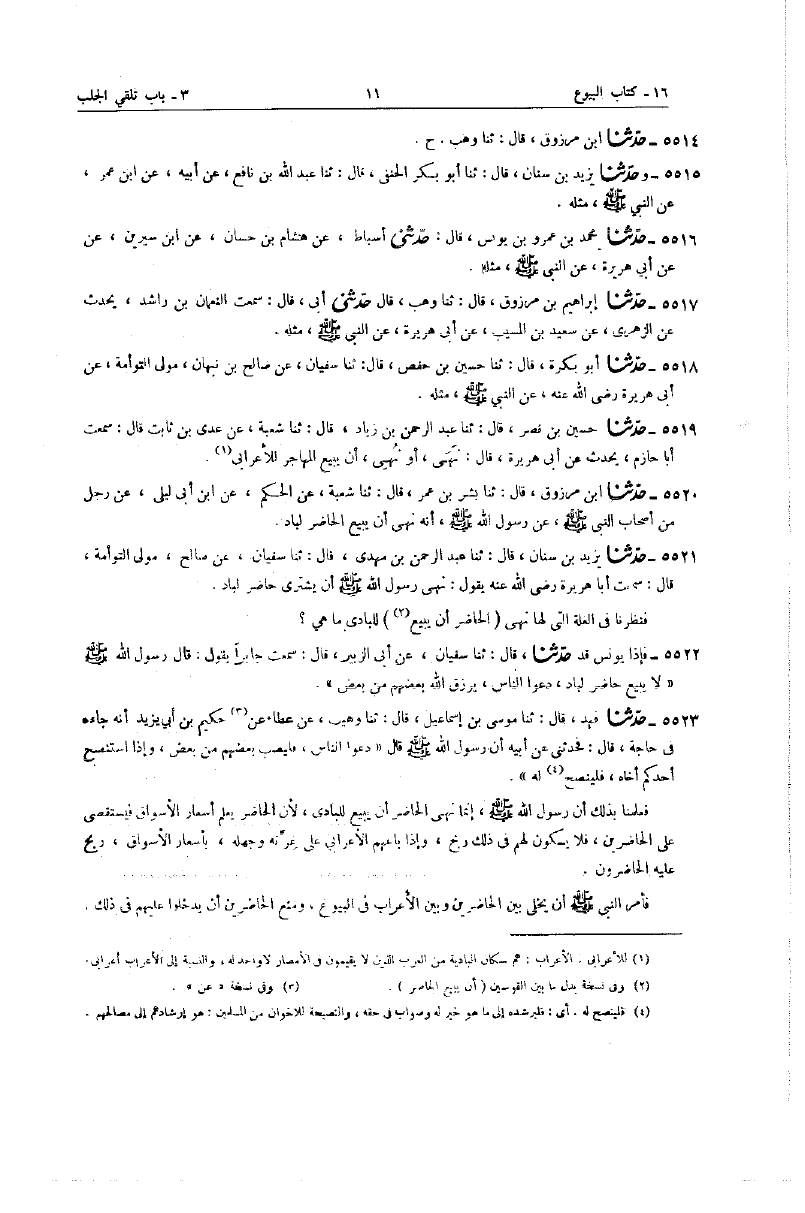 ١٦ - كتاب البيوع ١١ ٣ - باب تلقي الجلب
٥٥١٤ - حدثنا ابن مرزوق ، قال : ثنا وهب . ح .
٥٥١٥ - وحدثنا يزيد بن سنان ، قال : ثنا أبو بكر الحنفى ، قال : ثنا عبد الله بن نافع ، عن أبيه ، عن ابن عمر ،
عن النبي ﷺ ، مثله .
٥٥١٦ - حدثنا محمد بن عمرو بن يونس ، قال : حدثنى أسباط ، عن هشام بن حسان ، عن ابن سيرين ، عن
عن أبى هريرة ، عن النبى ﷺ ، مثله .
٥٥١٧ - حدثنا إبراهيم بن مرزوق ، قال : ثنا وهب ، قال حدثنى أبى ، قال : سمعت النعمان بن راشد ، يحدث
عن الزهرى ، عن سعيد بن المسيب ، عن أبى هريرة ، عن النبى ﷺ ، مثله .
٥٥١٨ - حدثنا أبو بكرة ، قال : ثنا حسين بن حفص ، قال : ثنا سفيان ، عن صالح بن نبهان ، مولى التوأمة ، عن
أبى هريرة رضى الله عنه ، عن النبي ﷺ ، مثله .
٥٥١٩ - حدثنا حسين بن نصر ، قال : ثنا عبد الرحمن بن زياد ، قال : ثنا شعبة ، عن عدى بن ثابت قال : سمعت
أبا حازم ، يحدث عن أبى هريرة ، قال : نَهَى ، أو نُهِى ، أن يبيع المهاجر للأعرابى(١) .
٥٥٢٠ - حدثنا ابن مرزوق ، قال : ثنا بشر بن عمر ، قال : ثنا شعبة ، عن الحكم ، عن ابن أبى ليلى ، عن رجل
من أصحاب النبى ﷺ ، عن رسول الله ﷺ ، أنه نهى أن يبيع الحاضر لباد .
٥٥٢١ - حدثنا يزيد بن سنان ، قال : ثنا عبد الرحمن بن مهدى ، قال : ثنا سفيان ، عن صالح ، مولى التوأمة ،
قال : سمعت أبا هريرة رضى الله عنه يقول : نهى رسول الله ﷺ أن يشترى حاضر لباد .
فنظرنا فى العلة التى لها نهى ( الحاضر أن يبيع(٢) ) للبادى ما هي ؟
٥٥٢٢ - فإذا يونس قد حدثنا ، قال : ثنا سفيان ، عن أبى الزبير ، قال : سمعت جابراً يقول : قال رسول الله ﷺ
« لا يبيع حاضر لباد ، دعوا الناس ، يرزق الله بعضهم من بعض » .
٥٥٢٣ - حدثنا فهد ، قال : ثنا موسى بن إسماعيل ، قال : ثنا وهيب ، عن عطاء عن(٣) حكيم بن أبي يزيد أنه جاءه
فى حاجة ، قال : فحدثنى عن أبيه أن رسول الله ﷺ قال « دعوا الناس ، فليصب بعضهم من بعض ، وإذا استنصح
أحدكم أخاه ، فلينصح(٤) له » .
فعلمنا بذلك أن رسول الله ﷺ ، إنما نهى الحاضر أن يبيع للبادى ، لأن الحاضر يعلم أسعار الأسواق فيستقصى
على الحاضرين ، فلا يكون لهم فى ذلك ربح ، وإذا باعهم الأعرابى على غرّته وجهله ، بأسعار الأسواق ، ربح
عليه الحاضرون .
فأمر النبى ﷺ أن يخلى بين الحاضرين وبين الأعراب فى البيوع ، ومنع الحاضرين أن يدخلوا عليهم فى ذلك .
(١) للأعرابى . الأعراب : هم سكان البادية من العرب الذين لا يقيمون فى الأمصار لا واحد له ، والنسبة إلى الأعراب أعرابى .
(٢) وفى نسخة بدل ما بين القوسين ( أن يبيع الحاضر ) . (٣) وفى نسخة « عن » .
(٤) فلينصح له . أى : فليرشده إلى ما هو خير له وصواب فى حقه ، والنصيحة للاخوان من المسلمين : هو إرشادهم إلى مصالحهم .